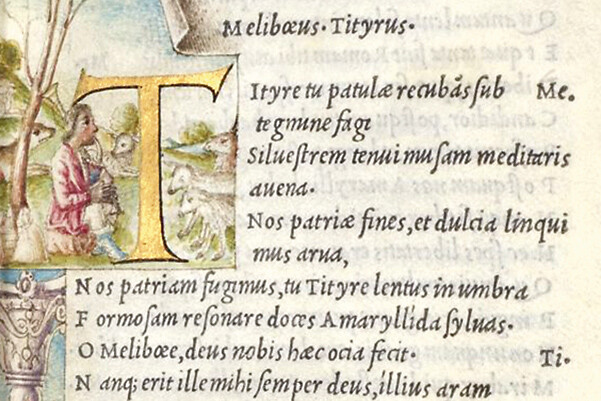 Melibœus·Tityrus·
Tityre tu patulæ recubãs sub Me.
tegmune fagi
Siluestrem tenui musam meditaris
auena·
Nos patriæ fines,et dulcia linqui
mus arua,
Nos patriam fugimus,tu Tityre lentus in umbra
Formosam resonare doces Amaryllida syluas·
O Melibœe,deus nobis hæc ocia fecit· Ti.
Nanq; erit ille mihi semper deus,illius aram